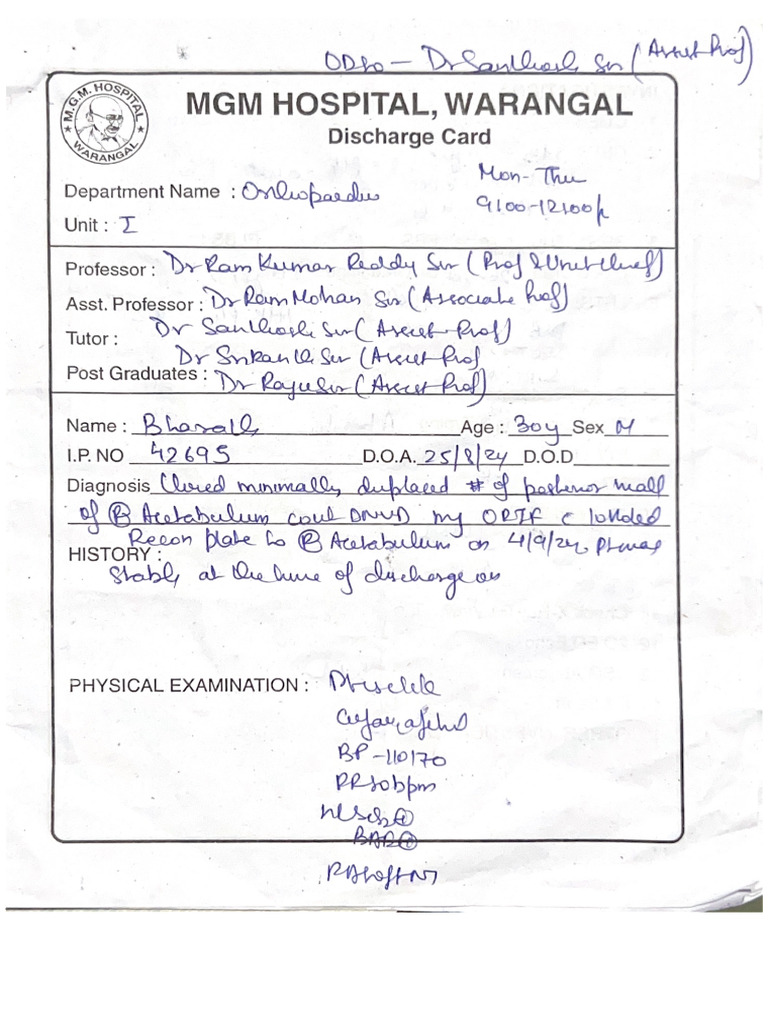 Dr Santhosh Sir (Assist Prof)
M.G.M. HOSPITAL
WARANGAL
MGM HOSPITAL, WARANGAL
Discharge Card
Mon - Thu
Department Name : Orthopaedics
9:00-12:00p
Unit : I
Professor : Dr Ram Kumar Reddy Sir (Prof & Unit Chief)
Asst. Professor : Dr Ram Mohan Sir (Associate Prof)
Tutor : Dr Santhosh Sir (Assist Prof)
Dr Srikanth Sir (Assist Prof
Post Graduates : Dr Raju Sir (Assist Prof)
Name : Bharath Age : 30y Sex M
I.P. NO 42695 D.O.A. 25/8/24 D.O.D
Diagnosis Closed minimally displaced # of posterior wall
of (R) Acetabulum DNVD ORIF c
Recon plate to (R) Acetabulum on 4/9/24. Pt was
HISTORY :
Stable at the time of discharge on
PHYSICAL EXAMINATION : Pt is c/c/c
BP - 110/70
BAE